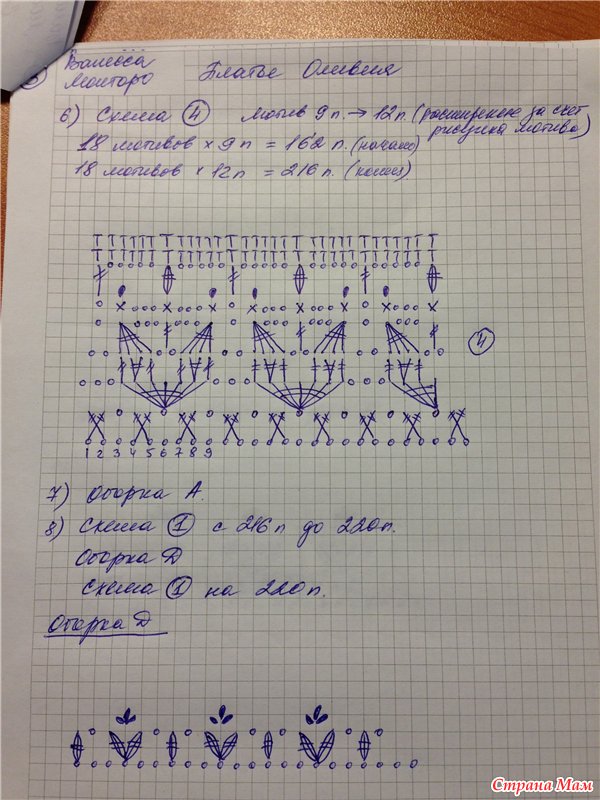 Ванесса
Монторо
Платье Оливия
6) Схема 4 мотив 9п. → 12п. (расширение за счет
рисунка мотива)
18 мотивов × 9п = 162 п. (начало)
18 мотивов × 12п = 216 п. (конец)
4
1 2 3 4 5 6 7 8 9
7) Оборка А.
8) Схема 1 с 216 п до 220п.
Оборка Д
Схема 1 на 220п.
Оборка Д
Страна Мам